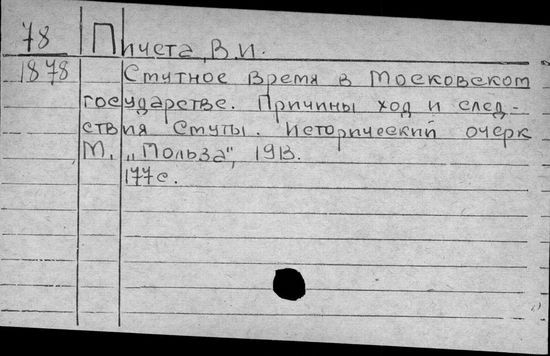 78 Пичета, В.И.
1878 Смутное время в Московском
государстве. Причины ход и след-
ствия Смуты. Исторический очерк
М., „Польза", 1913.
177с.